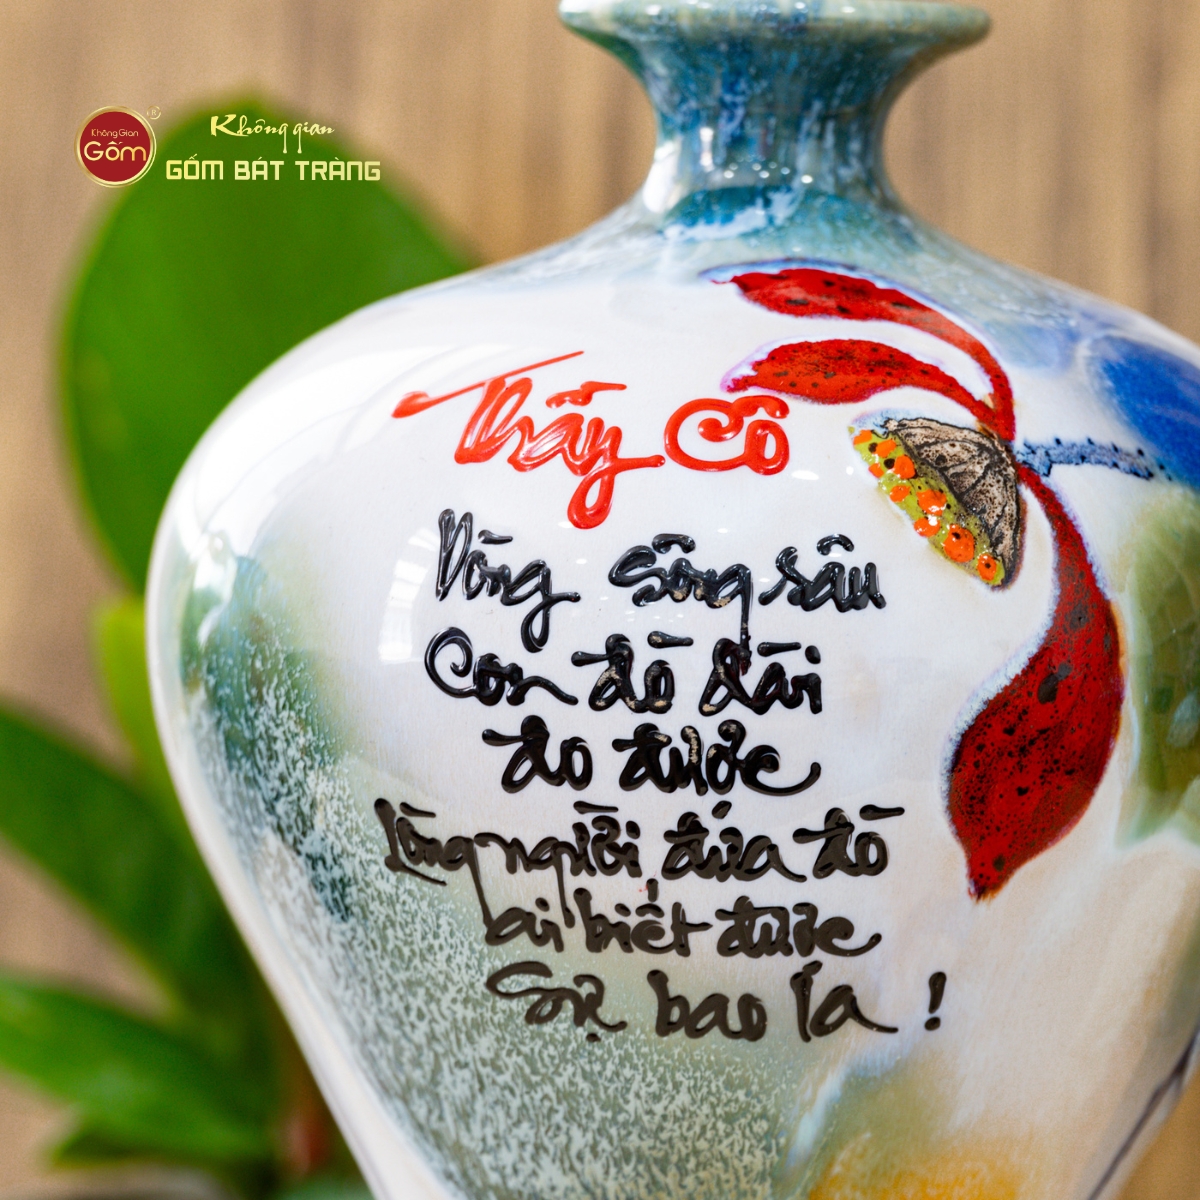 Không Gian
Gốm
®
Không gian
GỐM BÁT TRÀNG
Thầy Cô
Dòng sông sâu
Con đò dài
đo được
Lòng người đưa đò
ai biết được
Sự bao la !